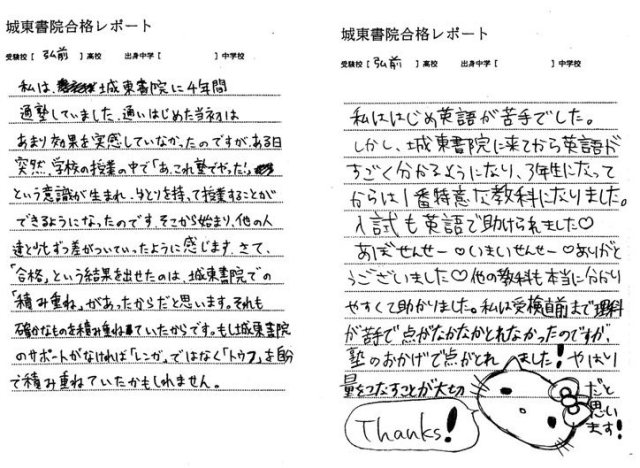 城東書院合格レポート
受験校 [ 弘前 ] 高校 出身中学 [ ] 中学校
私は、城東書院に4年間
通塾していました。通いはじめた当初は
あまり効果を実感していなかったのですが、ある日
突然、学校の授業の中で「あ、これ塾でやった!」
という意識が生まれ、ゆとりを持って授業することが
できるようになったのです。そこから始まり、他の人
達と少しずつ差がついていったように感じます。さて、
「合格」という結果を出せたのは、城東書院での
「積み重ね」があったからだと思います。それも
確かなものを積み重ねていたからです。もし城東書院
のサポートがなければ「レンガ」ではなく「トウフ」を自分
で積み重ねていたかもしれません。
城東書院合格レポート
受験校 [ 弘前 ] 高校 出身中学 [ ] 中学校
私ははじめ英語が苦手でした。
しかし、城東書院に来てから英語が
すごく分かるようになり、3年生になって
からは1番特意な教科になりました。
入試も英語で助けられました♡
あべせんせー♡いまいせんせー♡ありがと
うございました♡他の教科も本当に分かり
やすくて助かりました。私は受検直前まで理科
が苦手で点がなかなかとれなかったのですが、
塾のおかげで点がとれました!やはり
量をこなすことが大切だと
思い
ます!
Thanks!